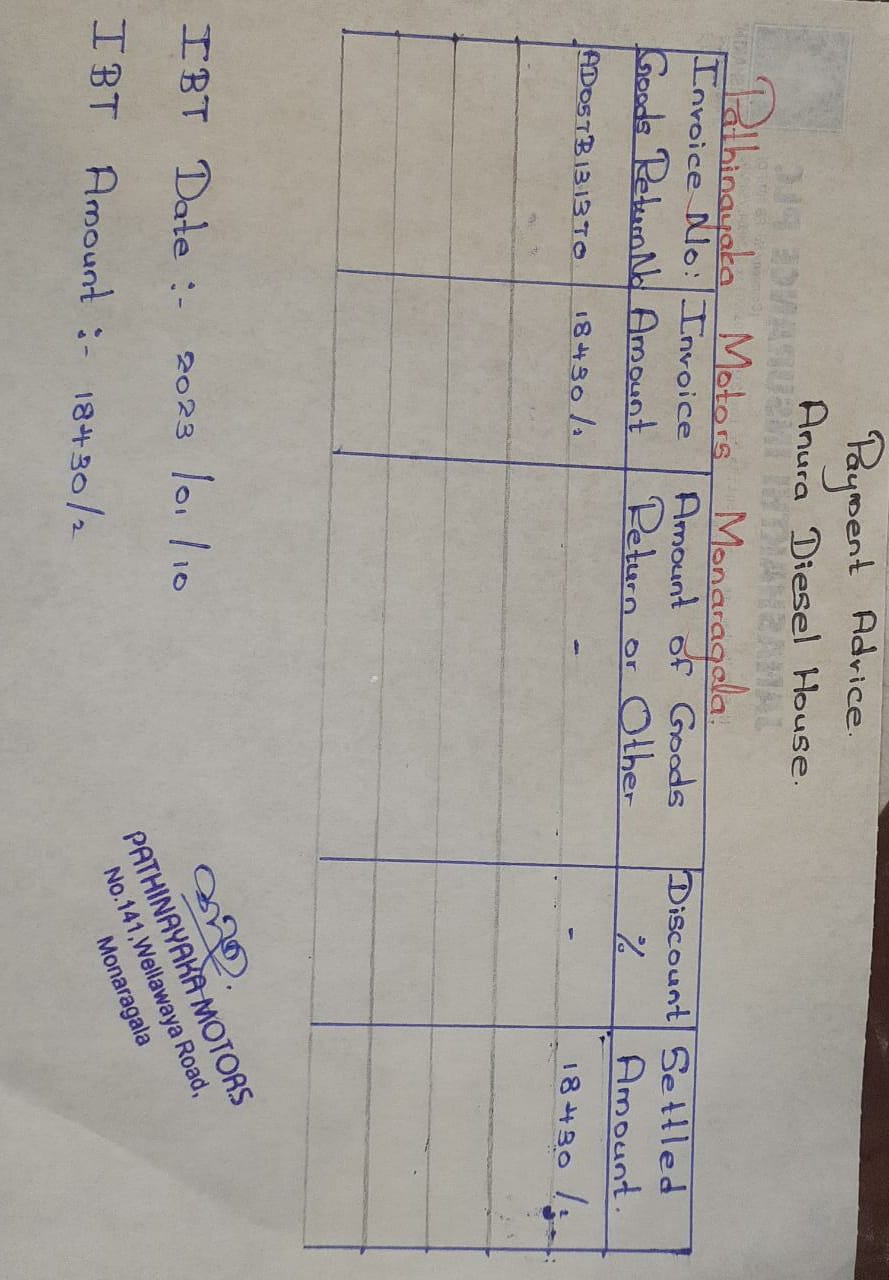 Payment Advice.
Anura Diesel House.
Pathinayaka Motors Monaragala.
Invoice No: Invoice Amount of Goods Discount Settled
Goods Return No Amount Return or Other % Amount.
AD05TB131370 18430/= - - 18430/=
IBT Date :- 2023/01/10
IBT Amount :- 18430/=
PATHINAYAKA MOTORS
No.141, Wellawaya Road,
Monaragala